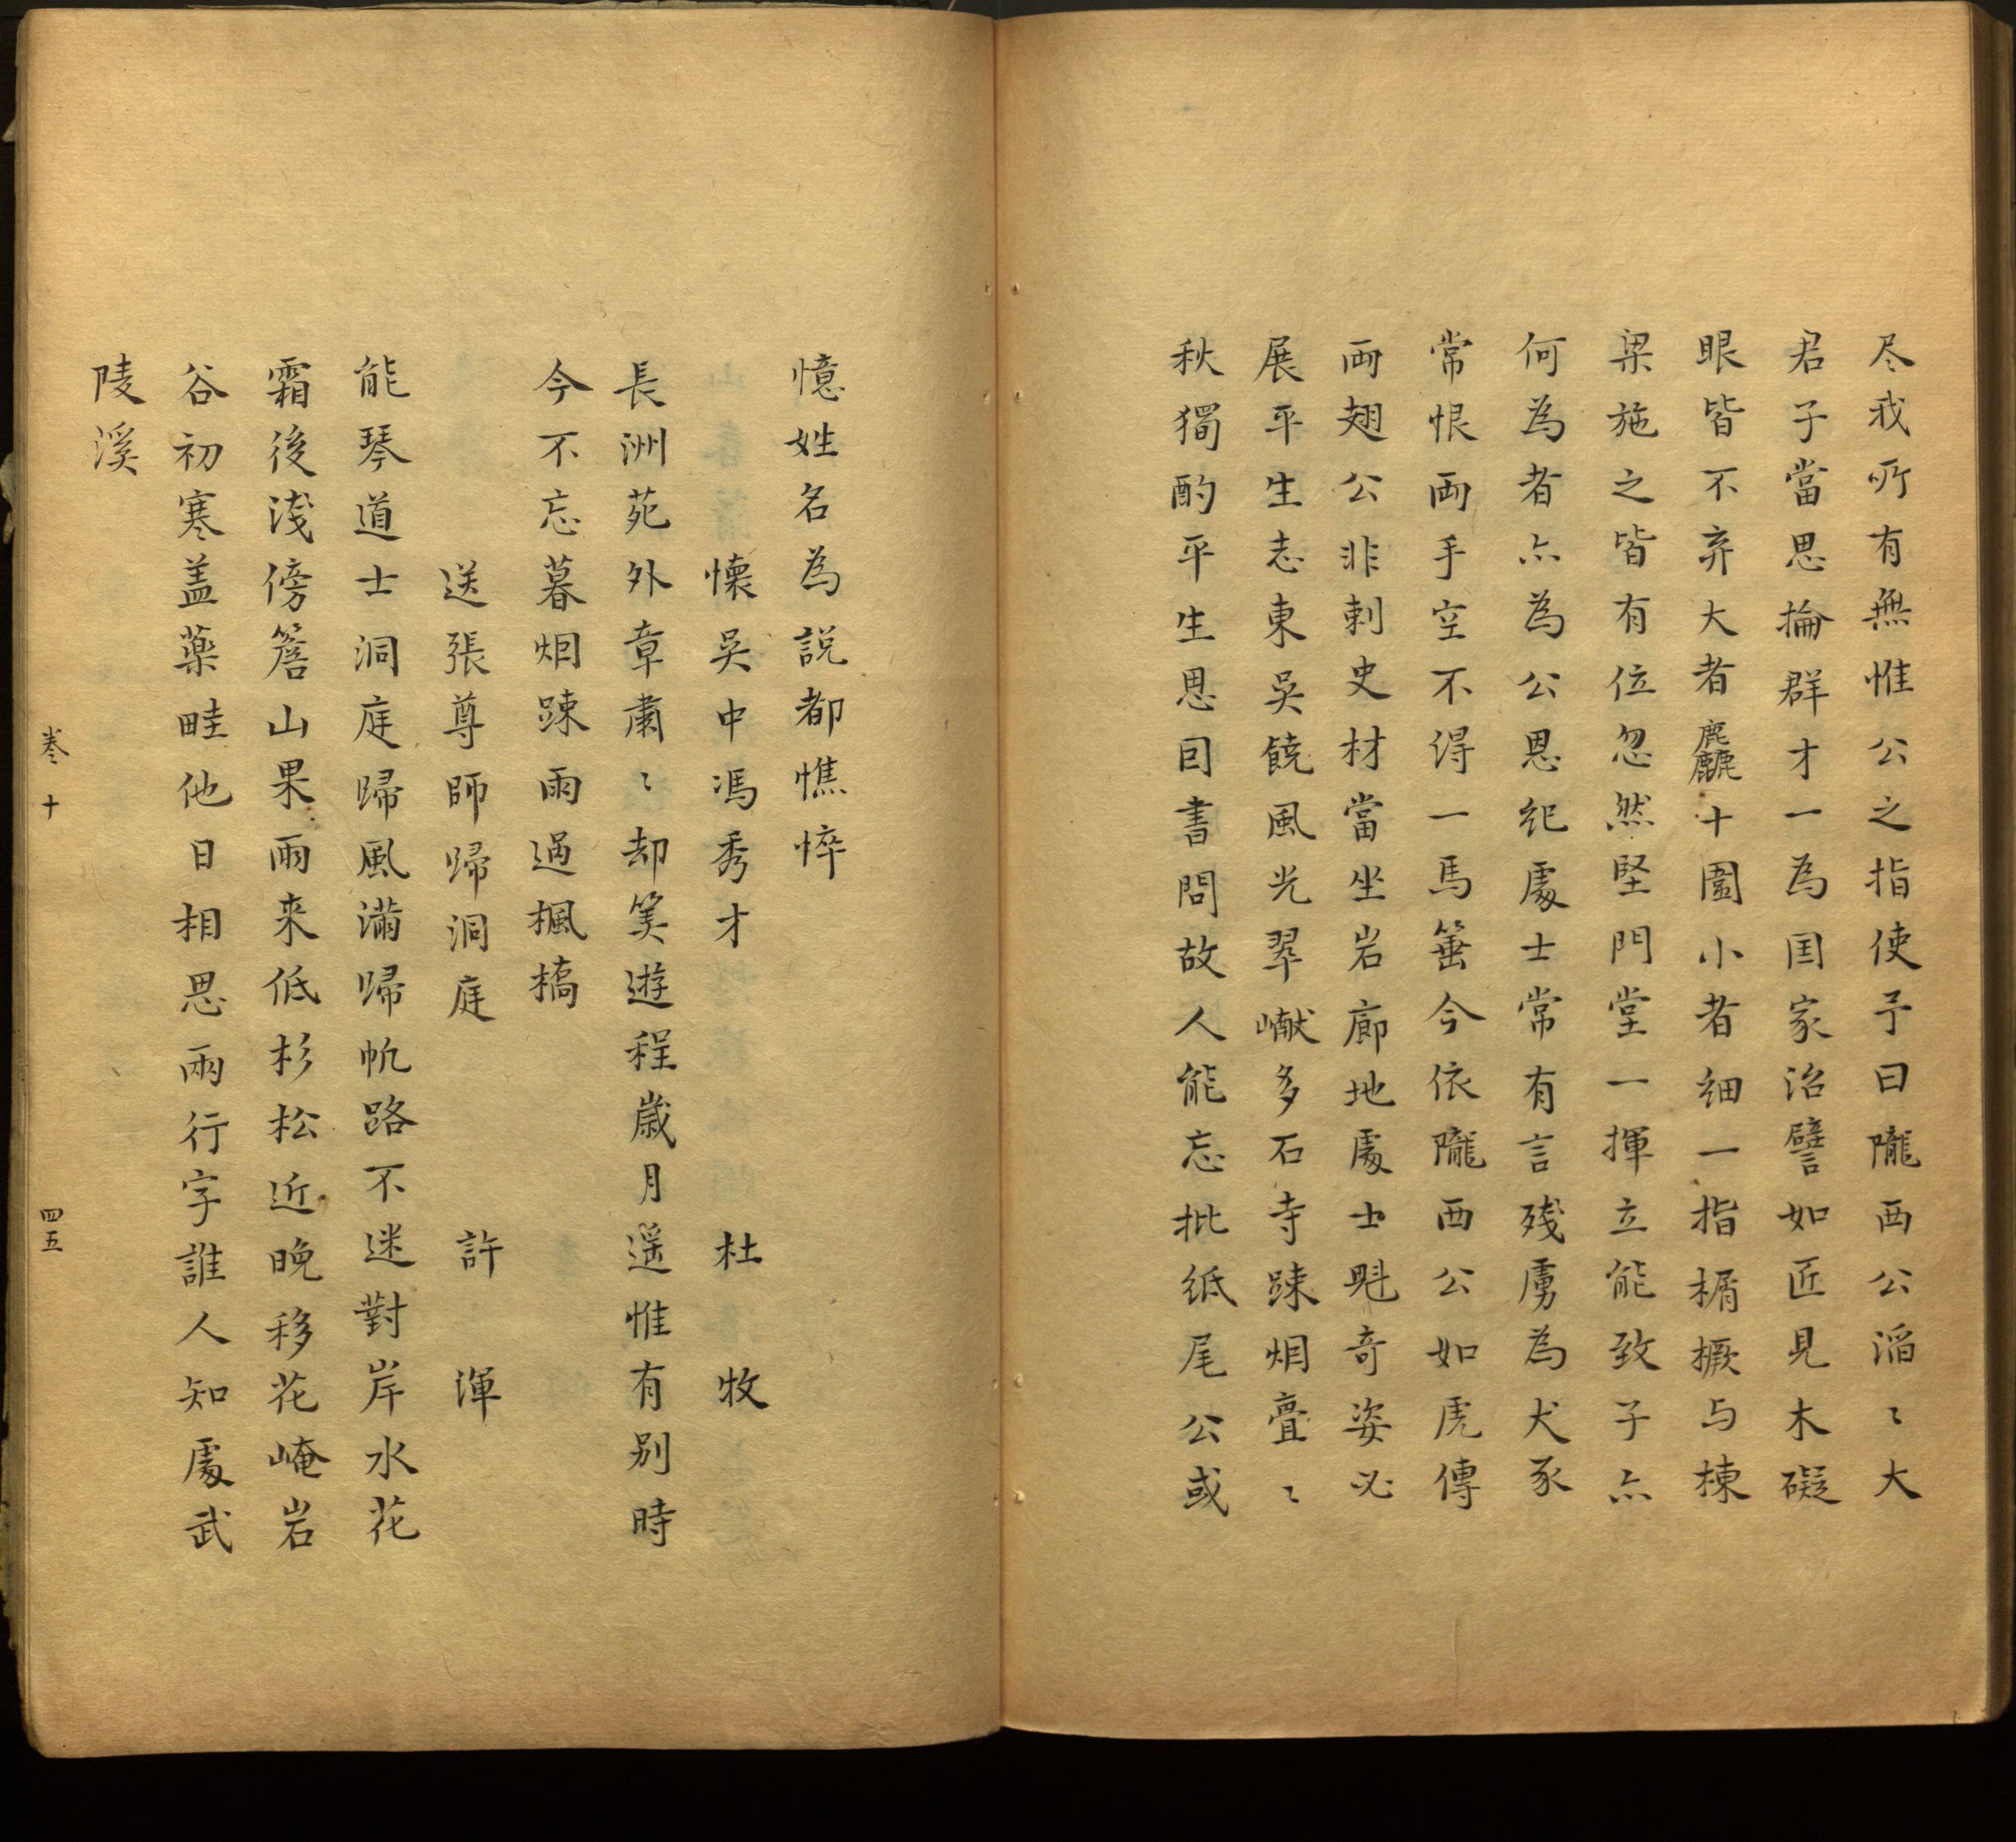 尽我所有無惟公之指使予曰隴西公滔〻大
君子當思掄群才一為国家治譬如匠見木礙
眼皆不弃大者麤十圍小者细一指榍橛与棟
梁施之皆有位忽然竪門堂一揮立能致予亦
何為者亦為公恩纪處士常有言残虜為犬豕
常恨両手空不得一馬箠今依隴西公如虎傅
両翅公非剌史材當坐岩廊地處士魁奇姿必
展平生志東吴饒風光翠巘多石寺踈烟亹〻
秋獨酌平生思因書問故人能忘批纸尾公或
憶姓名為説都憔悴
懐吴中馮秀才　杜牧
長洲苑外草肅〻却筭遊程歲月遥惟有别時
今不忘暮烟踈雨過楓橋
送張尊師歸洞庭　許渾
能琴道士洞庭歸風滿歸帆路不迷對岸水花
霜後淺傍簷山果雨来低杉松近晚移花崦岩
谷初寒盖藥畦他日相思兩行字誰人知處武
陵溪
卷十　四五